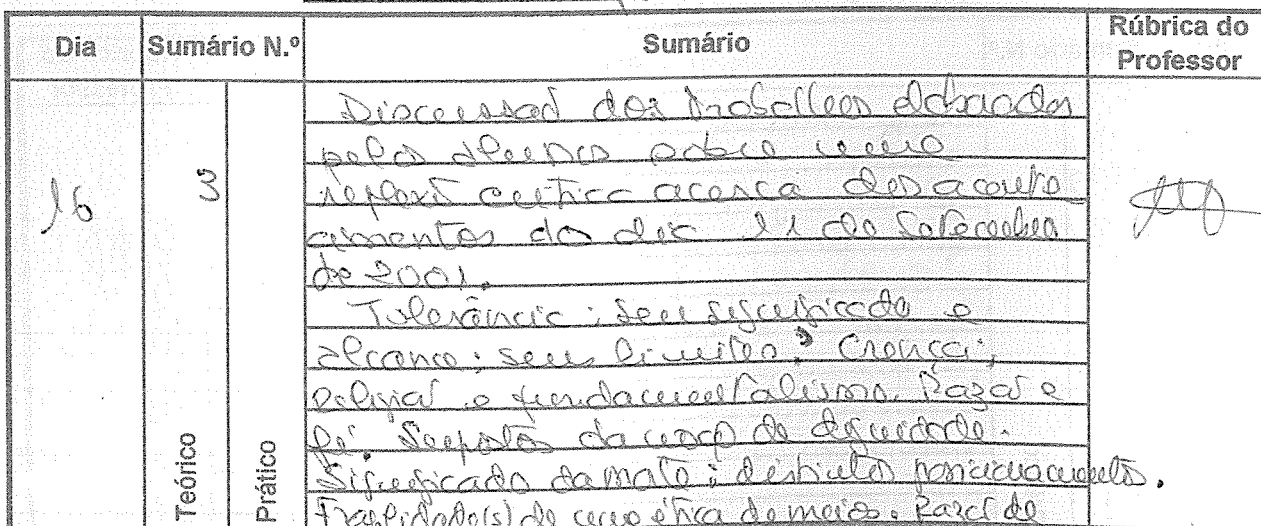 Dia Sumário N.º Sumário Rúbrica do Professor
16 3 Teórico Prático
Discussão dos trabalhos elaborados
pelos alunos sobre uma
reflexão crítica acerca dos aconte
cimentos do dia 11 de Setembro
de 2001.
Tolerância: seu significado e
alcance; seus limites. Crença,
religião e fundamentalismo. Razão e
fé. da noção de dignidade.
Significado da morte: distintos posicionamentos.
Fragilidade(s) de uma ética de meios. Razão de